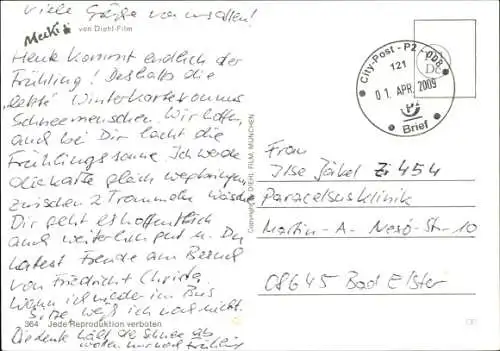 viele Grüße von uns allen!
Mecki von Diehl-Film
Heute kommt endlich der
Frühling! Deshalb die
letzte Winterkarte von uns
Schneemenschen. Wir hoffen,
auch bei Dir lacht die
Frühlingssonne. Ich werde
die Karte gleich wegbringen,
zwischen 2 Trommeln Wäsche
Dir geht es hoffentlich
auch weiterhin gut u. Du
hattest Freude am Besuch
von Friedrich + Christa.
Wann ich wieder im Bus
sitze weiß ich noch nicht.
364 Jede Reproduktion verboten
Die denke hält die Schnee ab
wollen nur noch Frühling
Copyright by DIEHL FILM, MÜNCHEN
City-Post - P2 - 008
121
01. APR. 2009
P2
Brief
Frau
Ilse Jäkel Zi 454
Paracelsusklinik
Martin-A.-Nexö-Str. 10
08645 Bad Elster